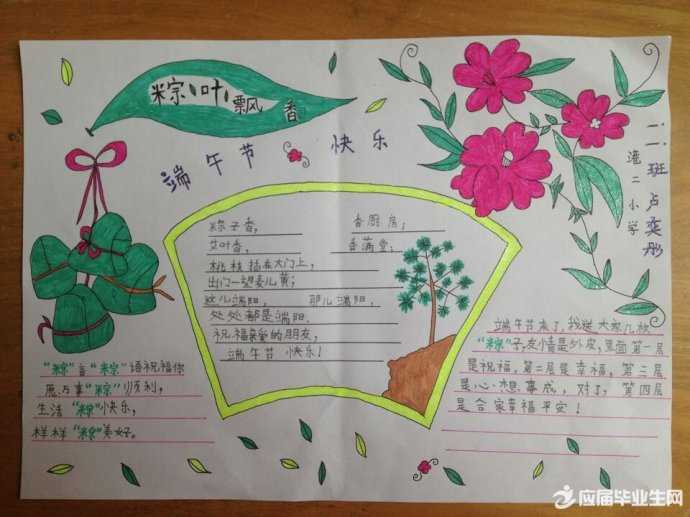 粽叶飘香
端午节 快乐
二.二班 卢奕彤
淮二小学
粽子香, 香厨房;
艾叶香, 香满堂;
桃枝插在大门上,
出门一望麦儿黄;
这儿端阳, 那儿端阳,
处处都是端阳,
祝福亲爱的朋友,
端午节 快乐!
"粽"言"粽"语祝福你
愿万事"粽"顺利,
生活"粽"快乐,
样样"粽"美好。
端午节来了,我送大家几枚
"粽"子,友情是外皮,里面第一层
是祝福,第二层是幸福,第三层
是心想事成,对了,第四层
是合家幸福平安!
应届毕业生网